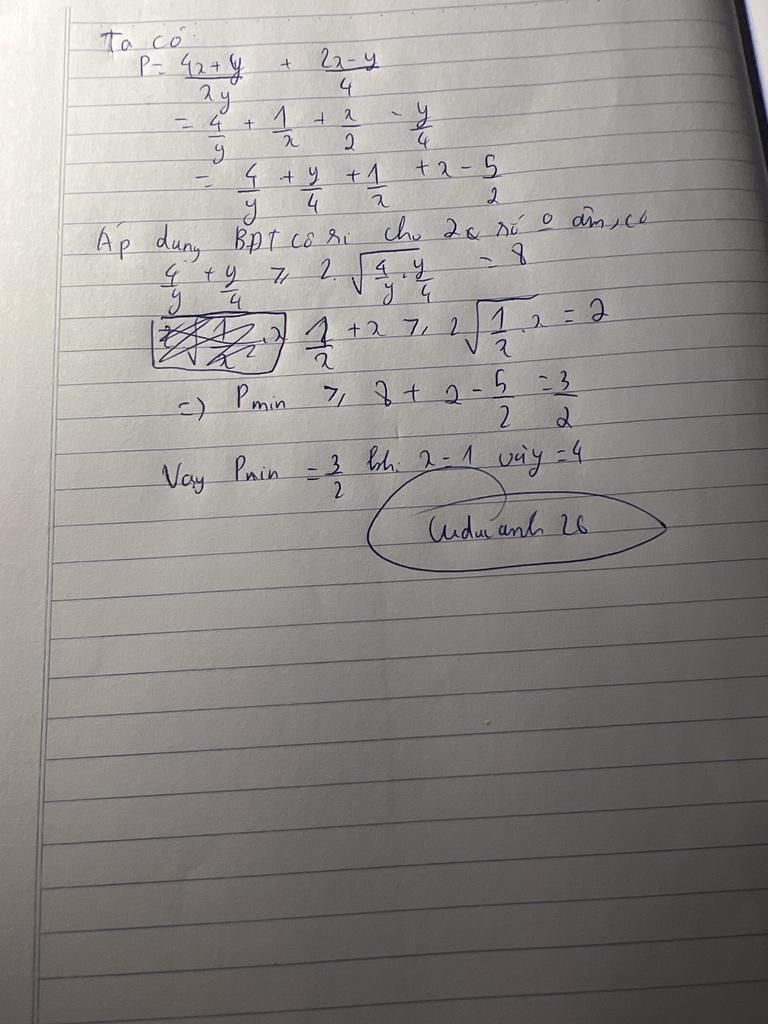 Ta có
P = (4x+y)/(xy) + (2x-y)/4
= 4/y + 1/x + x/2 - y/4
= 4/y + y/4 + 1/x + x - 5/2
Áp dụng BĐT cô si cho 2 số o âm, có
4/y + y/4 ≥ 2.√(4/y . y/4) = 8
1/x + x ≥ 2√(1/x . x) = 2
=) Pmin ≥ 8 + 2 - 5/2 = 3/2
Vay Pmin = 3/2 kh. x = 1 và y = 4
anh 26